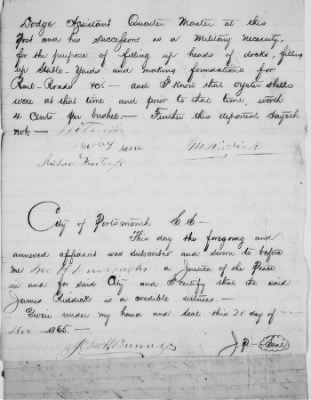 Dodge Assistant Quarter Master at this
Post and his successors as a Military Necessity,
for the purpose of filling up heads of docks, filling
up Stable-Yards and making foundations for
Rail-Roads &c. - and I know that oyster shells
were at that time and prior to that time, worth
4 Cents per bushel. - Further this deponent Sayeth
not. -
his
mark
City of Portsmouth S S -
This day the foregoing and
annexed affidavit was subscribed and sworn to before
me a Justice of the Peace
in and for said City and I certify that the said
James Riddick is a credible witness. -
Given under my hand and Seal this day of
1865. -
J P - Seal